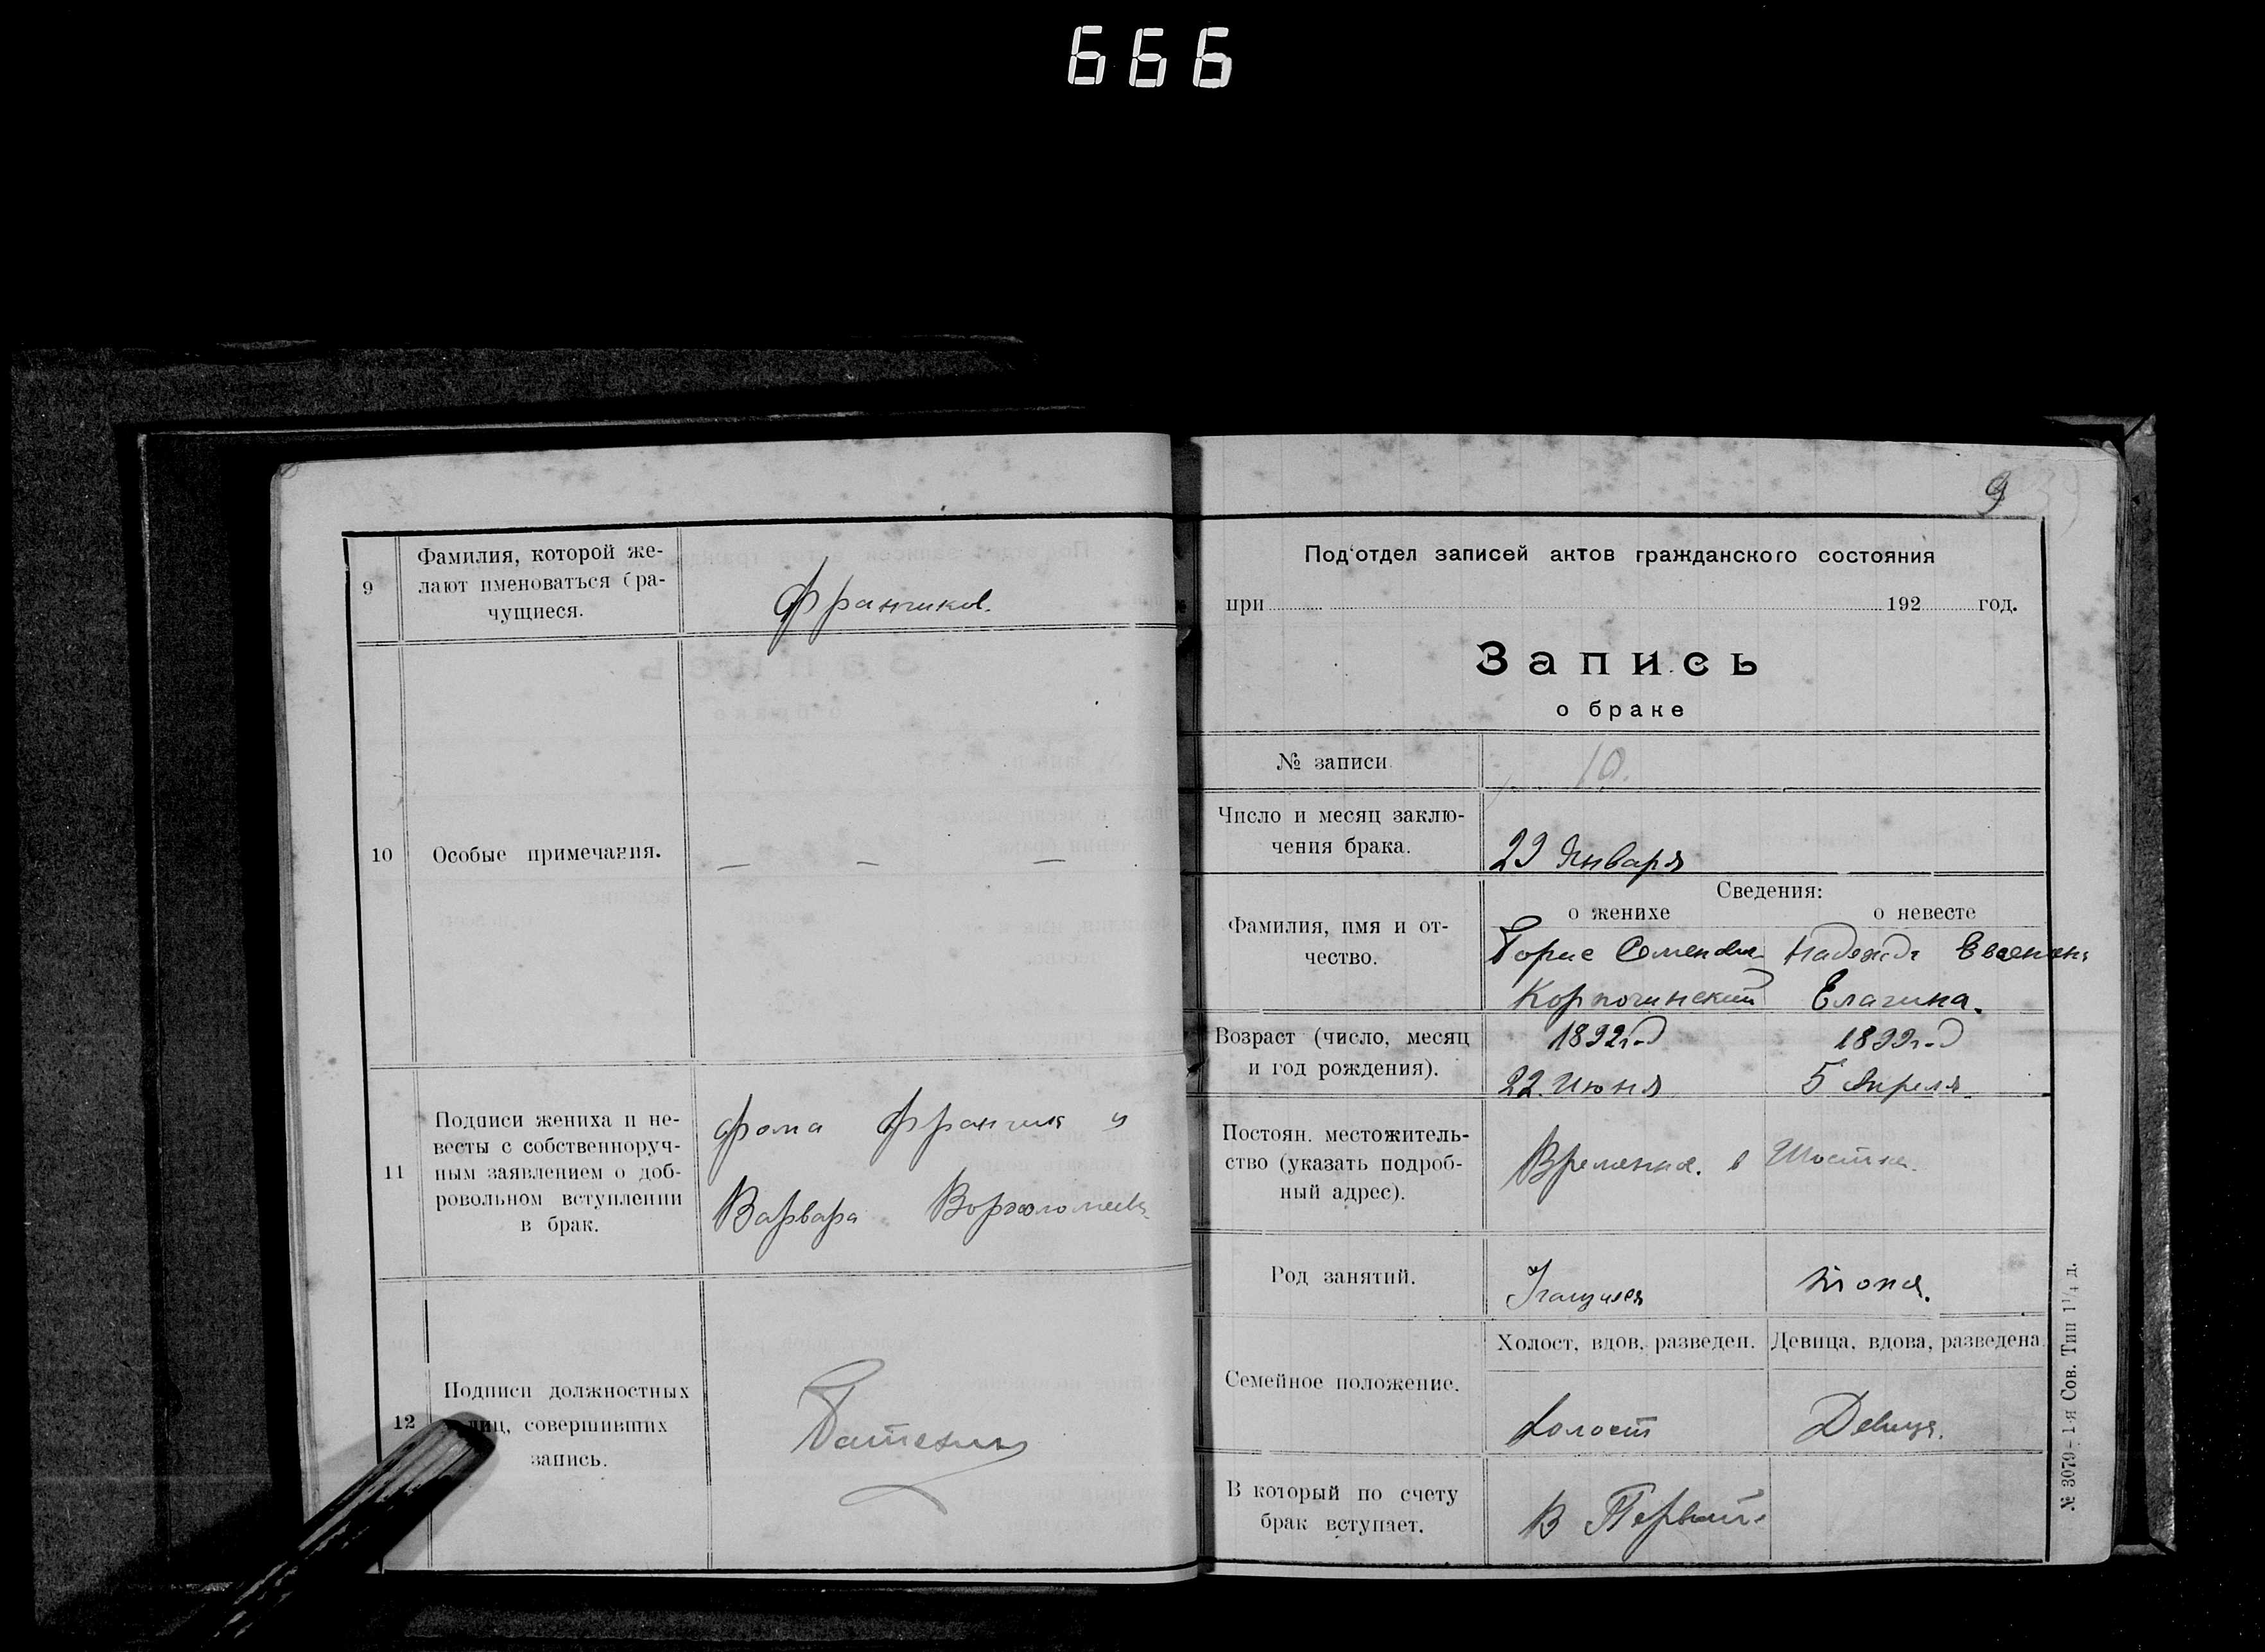 666
9
Фамилия, которой же-
лают именоваться бра-
чущиеся.
Франчиков.
10
Особые примечания.
— — —
11
Подписи жениха и не-
весты с собственноруч-
ным заявлением о доб-
ровольном вступлении
в брак.
Фома Франчик и
Варвара
12
Подписи должностных
лиц, совершивших
запись.
9
Под'отдел записей актов гражданского состояния
при 192 год.
Запись
о браке
№ записи
10.
Число и месяц заклю-
чения брака.
29 Января
Сведения:
о женихе о невесте
Фамилия, имя и от-
чество.
Борис Семенов Надежда
Елагина.
Возраст (число, месяц
и год рождения).
1892г. 1899г.
22 Июня 5 Апреля
Постоян. местожитель-
ство (указать подроб-
ный адрес).
Временно в Шостке.
Род занятий.
Холост, вдов, разведен. Девица, вдова, разведена
Семейное положение.
холост Девица.
В который по счету
брак вступает.
В Первый
№ 3079–1-я Сов. Тип 1¹/₄ д.